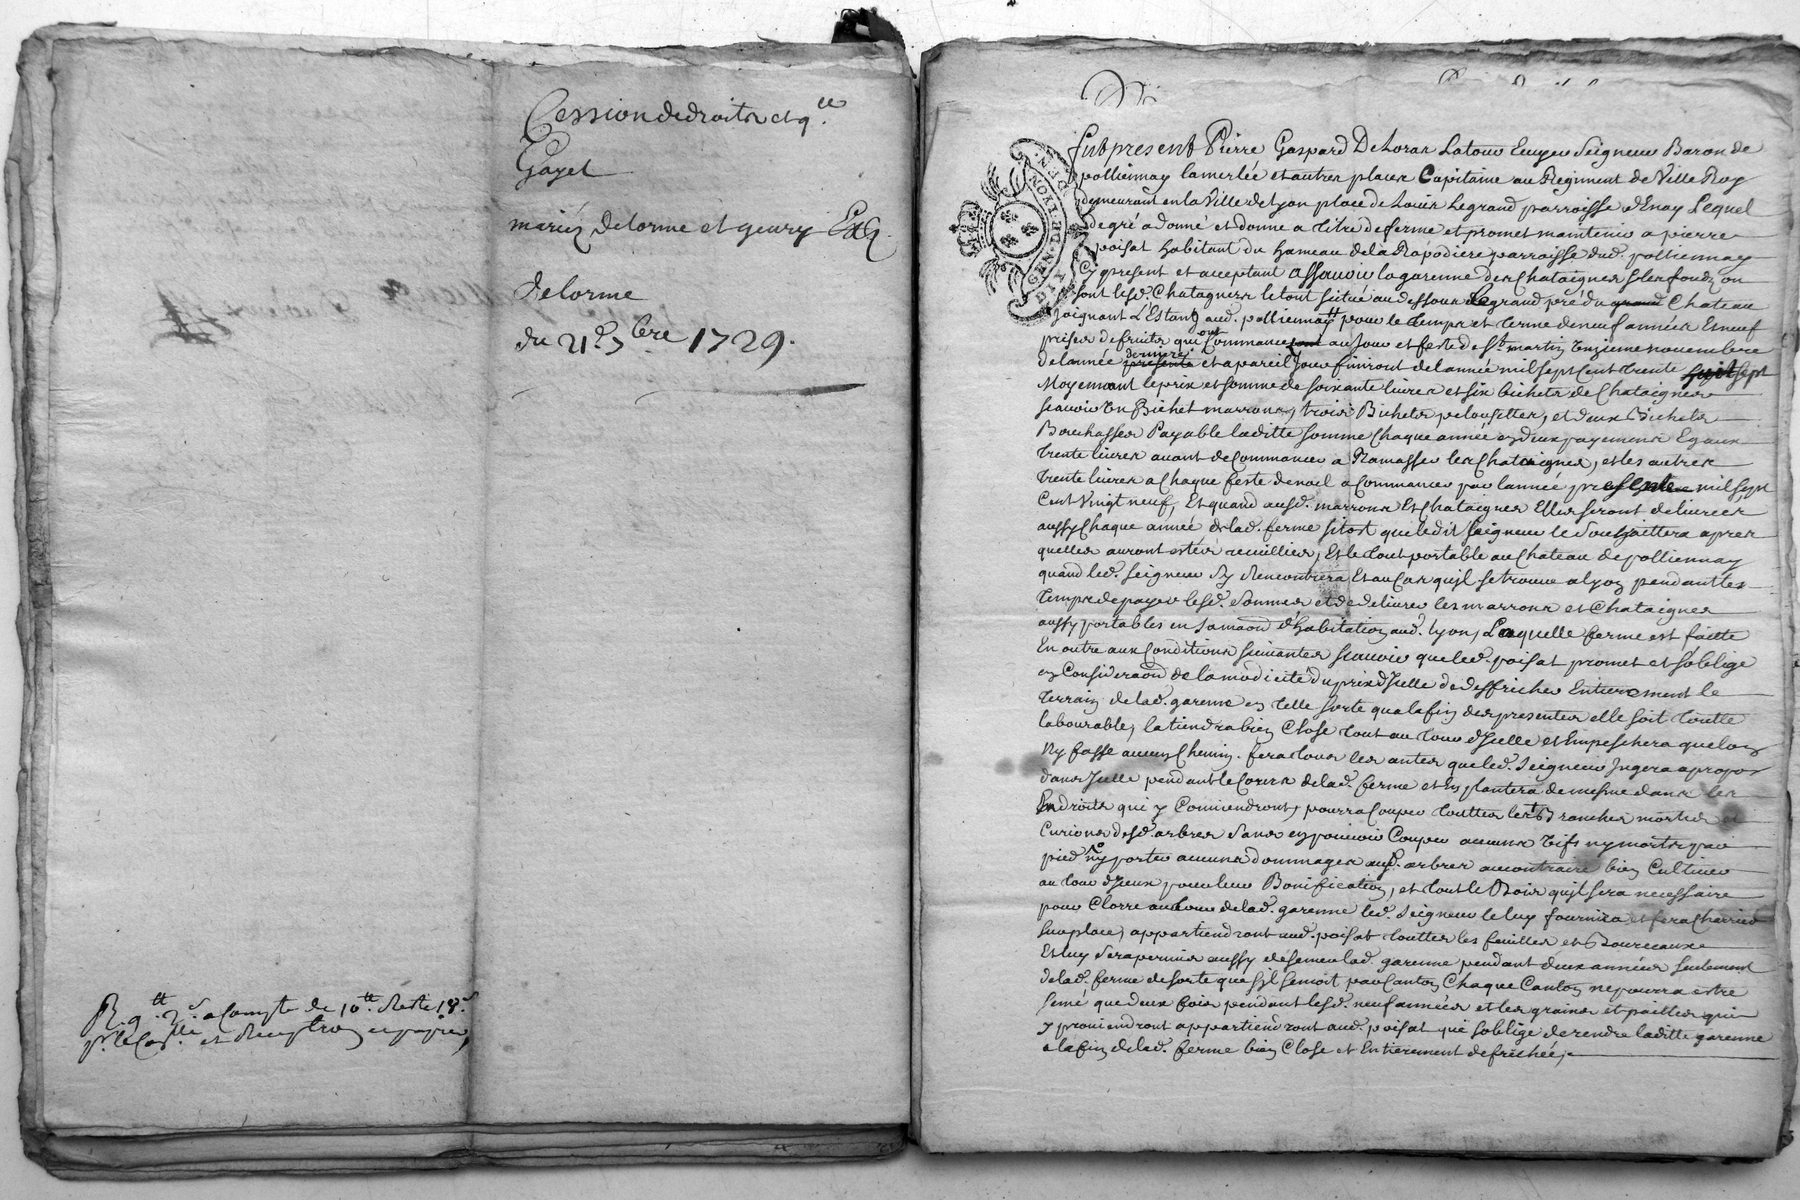 Cession de droits et q.ce
Gayet
mariéz delorme et geury Exz.
delorme
du 21e 7bre 1729.
R. 9tt 2s. a Compte de 10tt Reste 18s
GEN. DE. LYON. DIX DEN.
Fut present Pierre Gaspard De Loras Latour Ecuyer Seigneur Baron de
polliennay lamerlée et autres places Capitaine au Regiment de Ville Roy
demeurant en la Ville de Lyon place de Louis Legrand parroisse d'Enay Lequel
de gré a donné et donne a titre de ferme et promet maintenir a pierre
poisat habitant du hameau de la Rapodiere parroisse dud. polliennay
Cy present et acceptant assavoir la garenne des Chataigners & les fondz ou
sont lesd. Chatagners le tout situé au dessous Legrand pré du grand Chateau
joignant L'Estang aud. polliennay pour le temps et terme de neuf années Et neuf
prises de fruits qui ont Commancé au Jour et feste de St. martin Onzieme novembre
de lannée derniere presente et a pareil Jour finiront de lannée mil sept Cent trente huit sept
Moyennant le prix et somme de soixante livres et six bichets de Chataignes
scavoir Un Bichet marrons, trois Bichets pelousettes, et deux Bichets
Bouchasses Payable laditte somme Chaque année en deux payemens Egaux
trente livres avant de Commancer a Ramasser les Chataignes, et les autres
trente livres a Chaque feste de noel a Commancer par lannée presente mil sept
Cent Vingt neuf, Et quand ausd. marrons Et Chataignes Elles seront delivrées
aussy Chaque année de lad. ferme sitost que ledit Seigneur le Souhaittera apres
quelles auront estés receuillies, Et le tout portable au Chateau de polliennay
quand led. seigneur s'y Rencontrera Et au Cas qu'il se trouve a Lyon pendant les
temps de payer lesd. sommes et de delivrer les marrons et Chataignes
aussy portables en sa maon d'habitation aud. Lyon, Laquelle ferme est faitte
En outre aux Conditions suivantes scavoir que led. poisat promet et s'oblige
en Consideraon de la modicité du prix d'Icelle de deffricher Entierement le
terrain de lad. garenne en telle sorte qu'a la fin des presentes elle soit toutte
labourable, la tiendra bien Close tout au tour d'Icelle et Empeschera que lon
N'y fasse aucun Chemin. fera tous les antes que led. Seigneur Jugera a propos
dans Icelle pendant le Cours de lad. ferme et En plantera de mesme dans les
Endroits qui y Conviendront, pourra Couper touttes les Branches mortes et
Curions desd. arbres sans en pouvoir Couper aucuns vifs ny morts par
pied ny porter aucuns dommages ausd. arbres au contraire bien Cultiver
au tour d'Iceux pour leur Bonification, et tout le Bois qu'il sera necessaire
pour Clorre au tour de lad. garenne led. Seigneur le luy fournira et fera Charrier
sur place, appartiendront aud. poisat touttes les feuilles et
Et luy sera permis aussy de semer lad. garenne pendant deux années seulement
de lad. ferme de sorte que s'il semoit par Canton Chaque Canton ne pourra estre
semé que deux fois pendant lesd. neuf années et les grains et pailles qui
y proviendront appartiendront aud. poisat qui s'oblige de rendre laditte garenne
a la fin de lad. ferme bien Close et Entierement defrichée,